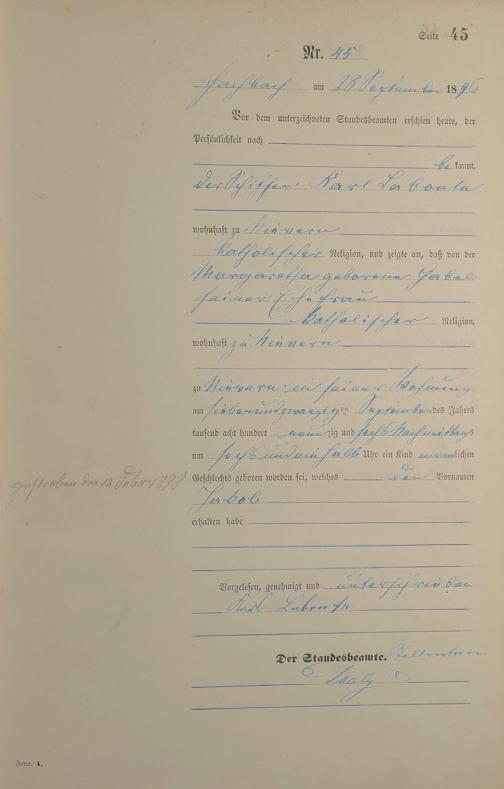 Seite 45
Nr. 45
Fachbach am 28 September 1896
Vor dem unterzeichneten Standesbeamten erschien heute, der
Persönlichkeit nach
bekannt,
der Schiffer Karl Labonte
wohnhaft zu Nievern
katholischer Religion, und zeigte an, daß von der
Margaretha geborene Gabel
seiner Ehefrau
katholischer Religion,
wohnhaft zu Nievern
zu Nievern in seiner Wohnung
am siebenundzwanzigsten September des Jahres
tausend acht hundert neunzig und sechs Nachmittags
um sechs und ein halb Uhr ein Kind männlichen
Geschlechts geboren worden sei, welches den Vornamen
Jakob
erhalten habe
gestorben den 12 Febr 1898
Vorgelesen, genehmigt und unterschrieben
Karl Labonte
Der Standesbeamte.
Form. A.